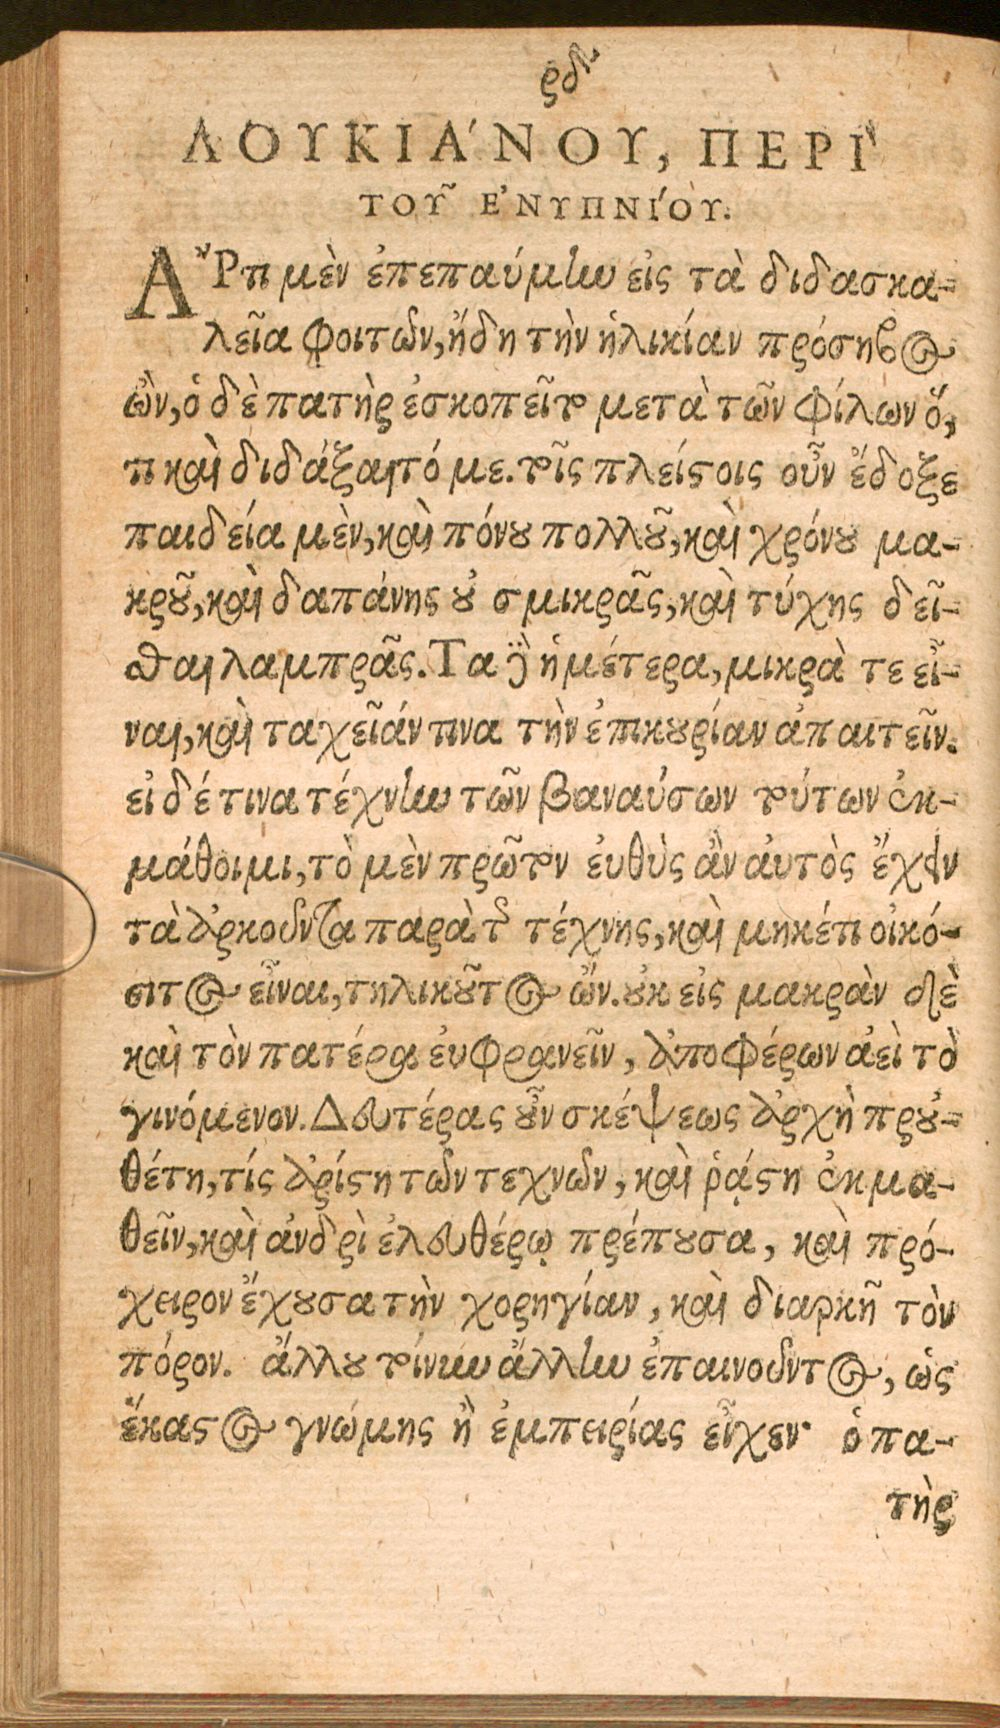 ρδ
ΛΟΥΚΙΑ´ΝΟΥ, ΠΕΡΙ`
ΤΟΥ͂ Ε᾿ΝΥΠΝΙ´ΟΥ.
Ἄρτι μὲν ἐπεπαύμην εἰς τὰ διδασκα-
λεῖα φοιτῶν, ἤδη τὴν ἡλικίαν πρόσηβος
ὢν, ὁ δὲ πατὴρ ἐσκοπεῖτο μετὰ τῶν φίλων ὅ,
τι καὶ διδάξαιτό με. τοῖς πλείστοις οὖν ἔδοξε
παιδεία μὲν, καὶ πόνου πολλοῦ, καὶ χρόνου μα-
κροῦ, καὶ δαπάνης οὐ σμικρᾶς, καὶ τύχης δεῖ-
σθαι λαμπρᾶς. Τὰ γὰρ ἡμέτερα, μικρὰ τε εἶ-
ναι, καὶ ταχεῖάν τινα τὴν ἐπικουρίαν ἀπαιτεῖν.
εἰ δέ τινα τέχνην τῶν βαναύσων τούτων ἐκ-
μάθοιμι, τὸ μὲν πρῶτον ἐυθὺς ἂν ἀυτὸς ἔχειν
τὰ ἀρκοῦντα παρὰ τῆς τέχνης, καὶ μηκέτι οἰκό-
σιτος εἶναι, τηλικοῦτος ὤν. οὐκ εἰς μακρὰν δὲ
καὶ τὸν πατέρα ἐυφρανεῖν, ἀποφέρων ἀεὶ τὸ
γινόμενον. Δευτέρας οὖν σκέψεως ἀρχὴ προὐ-
θέτη, τίς ἀρίστη τῶν τεχνῶν, καὶ ῥᾴστη ἐκμα-
θεῖν, καὶ ἀνδρὶ ἐλευθέρῳ πρέπουσα, καὶ πρό-
χειρον ἔχουσα τὴν χορηγίαν, καὶ διαρκῆ τὸν
πόρον. ἄλλου τοίνυν ἄλλην ἐπαινοῦντος, ὡς
ἕκαστος γνώμης ἢ ἐμπειρίας εἶχεν· ὁ πα-
τὴρ